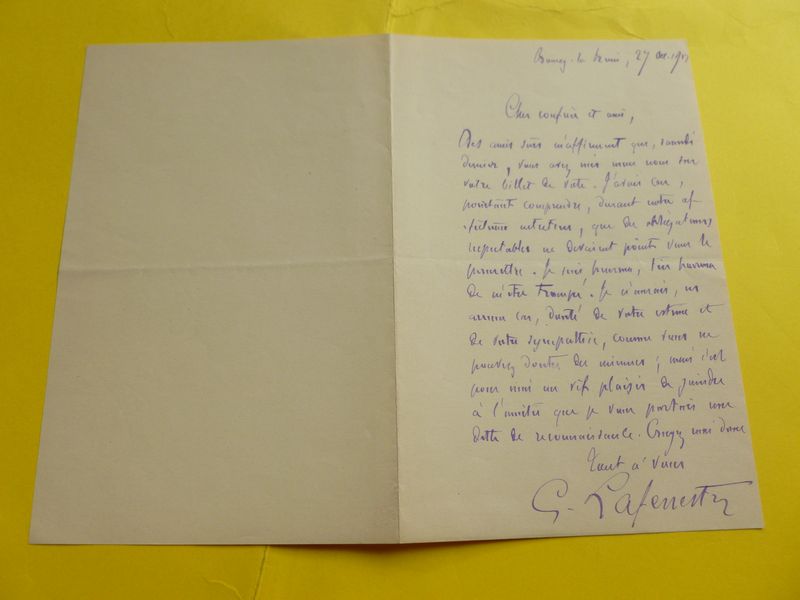 Bourg-la-Reine, 27
Cher confrère et ami,
Des amis sûrs m'affirment que, samedi
dernier, vous avez mis mon nom sur
votre billet de vote. J'avais cru,
pourtant comprendre, durant notre af-
fectueux entretien, que des obligations
respectables ne devaient point vous le
permettre. Je suis heureux, très heureux
de m'être trompé. Je n'aurais, en
aucun cas, douté de votre estime et
de votre sympathie, comme vous ne
pouvez douter des miennes ; mais c'est
pour moi un vif plaisir de joindre
à l'amitié que je vous portais une
dette de reconnaissance. Croyez moi donc
Tout à vous
G. Lafenestre